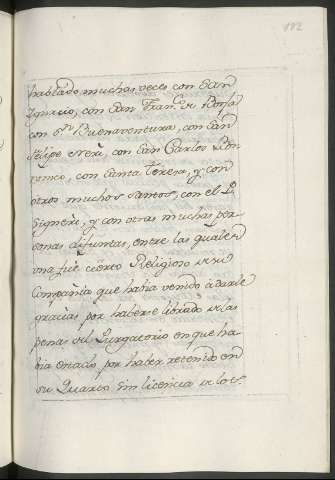 182
hablado muchas veces con San
Ygnacio, con San Fran.co de Borja
con S.n Buenaventura, con San
Felipe Neri, con San Carlos Bor
romeo, con Santa Teresa, y con
otros muchos Santos, con el P.
Señeri, y con otras muchas per
sonas difuntas, entre las quales
una fue cierto Religioso de su
Compañia que habia venido à darle
gracias por haberse librado de las
penas del Purgatorio en que ha
bia estado por haber retenido en
su Quarto sin licencia de los